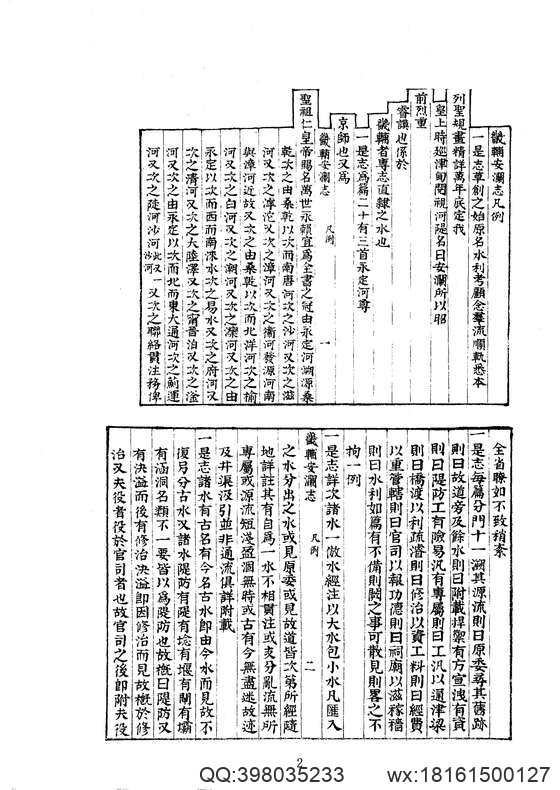 畿輔安瀾志凡例
一是志草創之始原名水利考顧念羣流順軌悉本
列聖規畫精詳萬年底定我
皇上時巡津甸閱視河隄名曰安瀾所以昭
前烈重
睿謨也係於
畿輔者專志直隸之水也
一是志爲篇二十有三首永定河尊
京師也又爲
畿輔安瀾志 凡例 一
聖祖仁皇帝賜名萬世永賴宜爲全書之冠由永定河溯源桑
乾次之由桑乾以次而南唐河次之沙河又次之滋
河又次之滹沱又次之漳河又次之衞河發源河南
與漳河近故又次之由桑乾以次而北洋河次之榆
河又次之白河又次之潮河又次之灤河又次之由
永定以次而西而南淶水次之易水又次之府河又
次之濟河又次之大陸澤又次之甯晉泊又次之滏
河又次之由永定以次而北而東大通河次之薊運
河又次之陡河沙河此又一沙河又次之聯絡貫注務俾
全省瞭如不致稍紊
一是志每篇分門十一溯其源流則曰原委尋其舊跡
則曰故道旁及餘水則曰附載捍禦有方宣洩有資
則曰隄防工有險易汛有專屬則曰工汛以通津梁
則曰橋渡以利疏濬則曰修治以資工料則曰經費
以重管轄則曰官司以報功德則曰祠廟以滋稼穡
則曰水利如篇有不備則闕之事可散見則畧之不
拘一例
一是志詳次諸水一倣水經注以大水包小水凡匯入
畿輔安瀾志 凡例 二
之水分出之水或見原委或見故道皆次第所經隨
地詳註其有自爲一水不相貫注或支分亂流無所
專屬或源流短淺盈涸無時或古有今無盡迷故迹
及井渠汲引並非通流俱詳附載
一是志諸水有古名有今名古水即由今水而見故不
復另分古水又諸水隄防有隄有埝有堰有閘有壩
有涵洞名類不一要皆以爲隄防也故槪曰隄防又
有決溢而後有修治決溢即因修治而見故槪於修
治又夫役者役於官司者也故官司之後即附夫役
2
QQ:398035233 wx:18161500127